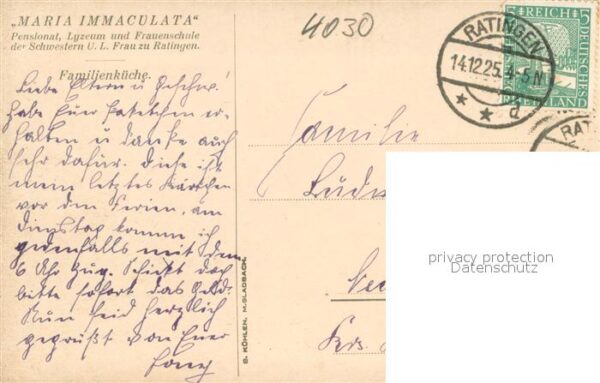 „MARIA IMMACULATA"
Pensionat, Lyzeum und Frauenschule
der Schwestern U. L. Frau zu Ratingen.
Familienküche.
4030
Liebe Eltern u. Geschw.
Habe Euer Paketchen er-
halten u danke auch
sehr dafür. Dieses ist
mein letztes Kärtchen
vor den Ferien, am
Dienstag komm ich
jedenfalls mit dem
6 Uhr Zug. Schickt doch
bitte sofort das Geld.
Nun seid herzlich
gegrüßt von Eurer
S. KÖHLEN, M.GLADBACH.
Familie
Lüde
RATINGEN
14.12.25. 4-5 N
d
5 REICH 5
DEUTSCHES
RHEINLAND
RAT
privacy protection
Datenschutz